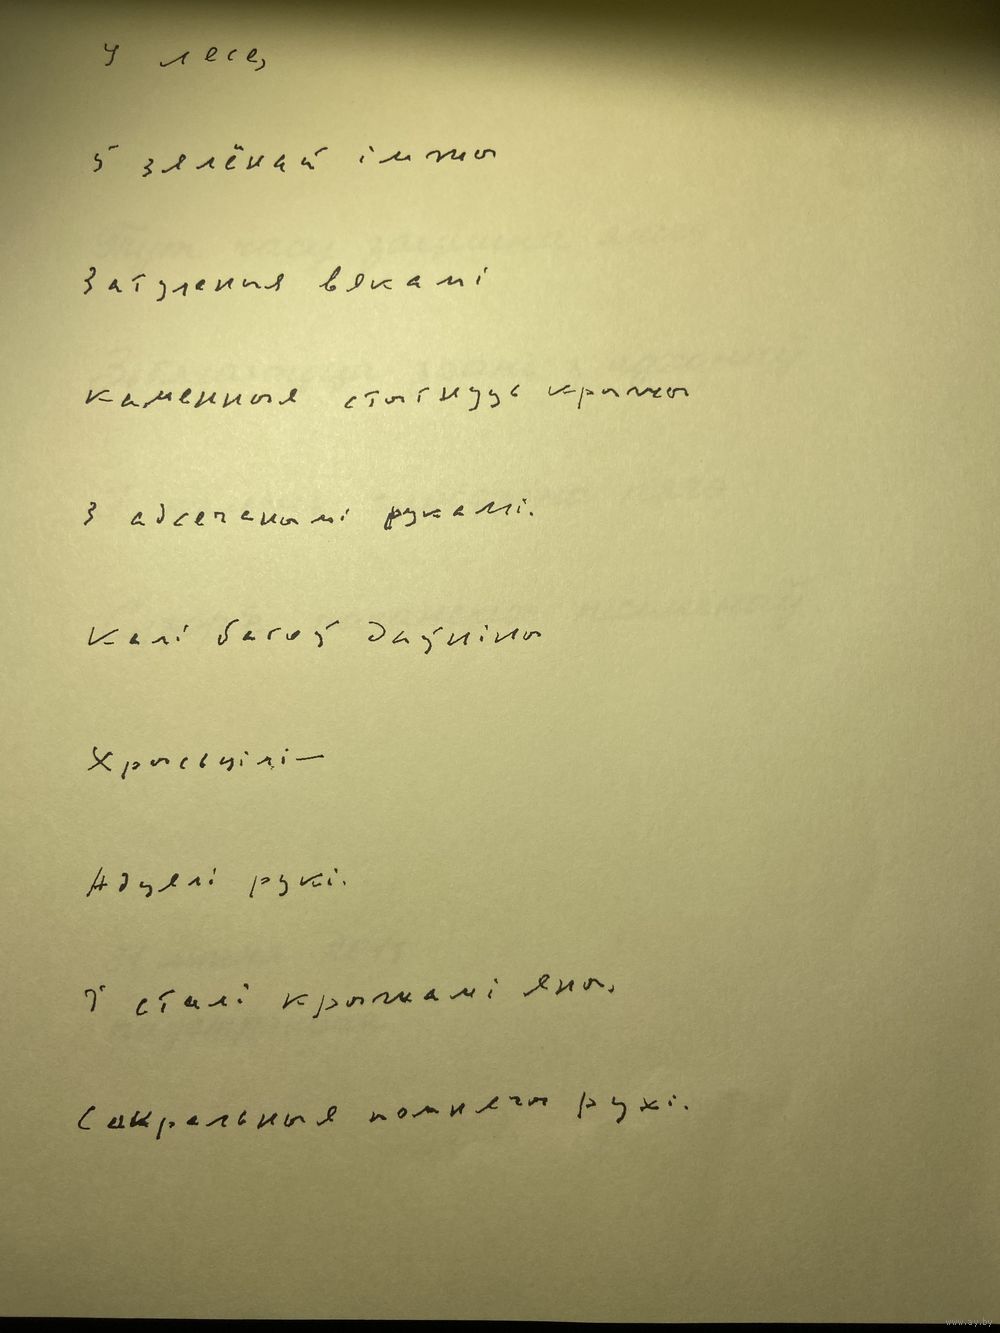 У лесе,
Ў зялёнай імжы
Затуленыя вякамі
Каменныя стыгнуць крыжы
З адсечанымі рукамі.
Калі багоў даўніны
Хрысьцілі—
Адцялі рукі.
І сталі крыжамі яны,
Сакральныя помнячы рухі.
www.ay.by